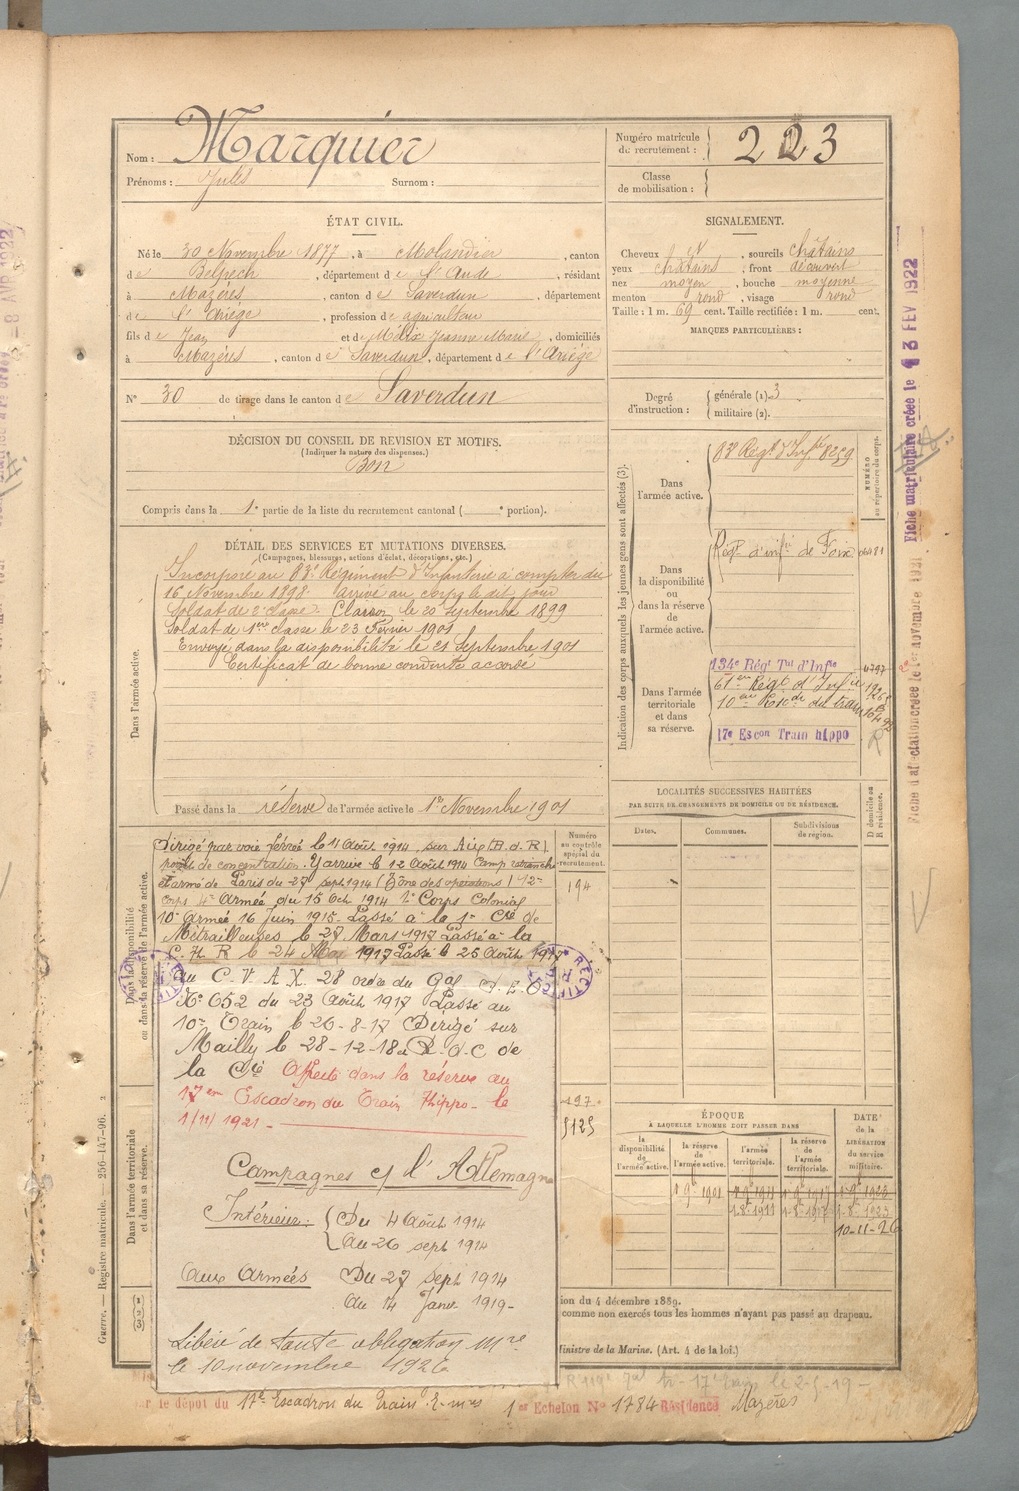 Nom : Marquier
Prénoms : Jules Surnom :
Numéro matricule de recrutement : 223
Classe de mobilisation :
ÉTAT CIVIL.
Né le 30 Novembre 1877, à Molandier, canton
de Belpech, département de l'Aude, résidant
à Mazères, canton de Saverdun, département
de l'Ariège, profession de agriculteur
fils de Jean et de Mélix Jeanne Marie, domiciliés
à Mazères, canton de Saverdun, département de l'Ariège
N° 30 de tirage dans le canton de Saverdun
SIGNALEMENT.
Cheveux et, sourcils châtains
yeux châtains, front découvert
nez moyen, bouche moyenne
menton rond, visage rond
Taille : 1 m. 69 cent. Taille rectifiée : 1 m. cent.
MARQUES PARTICULIÈRES :
Degré d'instruction : générale (1) 3
militaire (2).
DÉCISION DU CONSEIL DE REVISION ET MOTIFS.
(Indiquer la nature des dispenses.)
Bon
Compris dans la 1e partie de la liste du recrutement cantonal ( e portion).
DÉTAIL DES SERVICES ET MUTATIONS DIVERSES.
(Campagnes, blessures, actions d'éclat, décorations, etc.)
Dans l'armée active.
Incorporé au 83e Régiment d'Infanterie à compter du
16 Novembre 1898. arrivé au corps le dit jour
Soldat de 2e classe. Clairon le 20 Septembre 1899
Soldat de 1ere classe le 23 Février 1901
Envoyé dans la disponibilité le 21 Septembre 1901
Certificat de bonne conduite accordé
Passé dans la réserve de l'armée active le 1er Novembre 1901
Dans la disponibilité ou dans la réserve de l'armée active.
Dirigé par voie ferrée le 11 Août 1914 sur Aix (B. d. R)
point de concentration. Y arrive le 12 Août 1914 Camp retranché
et armé de Paris du 27 sept 1914 (Zône des opérations) 12e
corps 4e Armée du 15 Oct 1914 1e Corps Colonial
10e Armée 16 Juin 1915. Passé à la 1e Cie de
Métrailleuses le 27 Mars 1917 Passé à la
C. H R le 24 Mai 1917 Passé le 25 Août 1917
au C. V. A X. 28 ordre du Gal D. E.
N° 652 du 23 Août 1917 Passé au
10e Train le 26-8-17 Dirigé sur
Mailly le 28-12-18 D-d-C de
la Cie Affecté dans la réserve au
17em Escadron du Train Hippo - le
1/11/1921 -
Campagnes c/ l'Allemagne
Intérieur : Du 4 Août 1914
au 26 sept 1914
aux armées Du 27 sept 1914
au 14 Janv 1919 -
Libéré de toute obligation Mre
le 10 novembre 1926
Numéro au contrôle spécial du recrutement.
194
5125
Dans l'armée territoriale et dans sa réserve.
Indication des corps auxquels les jeunes gens sont affectés (3).
NUMÉRO au répertoire du corps.
Dans l'armée active. 83e Régt d'Infrie 8259
Dans la disponibilité ou dans la réserve de l'armée active. Régt d'infie de Foix 06481
Dans l'armée territoriale et dans sa réserve.
134e Régt Tal d'Infie 4797
61em Régt d'Infie
10em Escde du train
17e Escon Train hippo
LOCALITÉS SUCCESSIVES HABITÉES
PAR SUITE DE CHANGEMENTS DE DOMICILE OU DE RÉSIDENCE.
Dates. Communes. Subdivisions de région. D domicile ou R résidence.
ÉPOQUE
À LAQUELLE L'HOMME DOIT PASSER DANS
la disponibilité de l'armée active. la réserve de l'armée active. l'armée territoriale. la réserve de l'armée territoriale.
DATE de la LIBÉRATION du service militaire.
1 9bre 1901 1 9bre 1911 1 9bre 1917 1 9bre 1923
1-8-1911 1-8-1917 1-8-1923
10-11-26
ion du 4 décembre 1889.
comme non exercés tous les hommes n'ayant pas passé au drapeau.
Ministre de la Marine. (Art. 4 de la loi.)
le dépôt du 17e Escadron du Train E-mes 1er Echelon N° 1784 Résidence Mazères
Guerre. — Registre matricule. — 256-147-96. 2
Fiche matriculaire créée le 13 FEV 1922
Fiche d'affectation créée le 1er novembre 1921
RECTIFIC